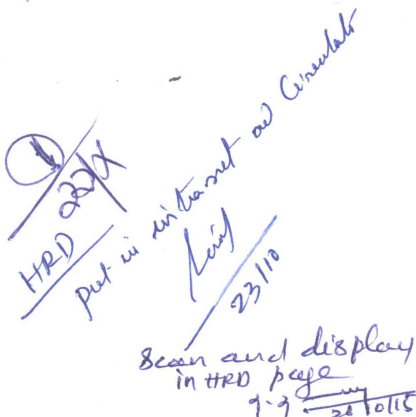 22/X
HRD
put in intranet and Circulate
23/10
Scan and display
in HRD page